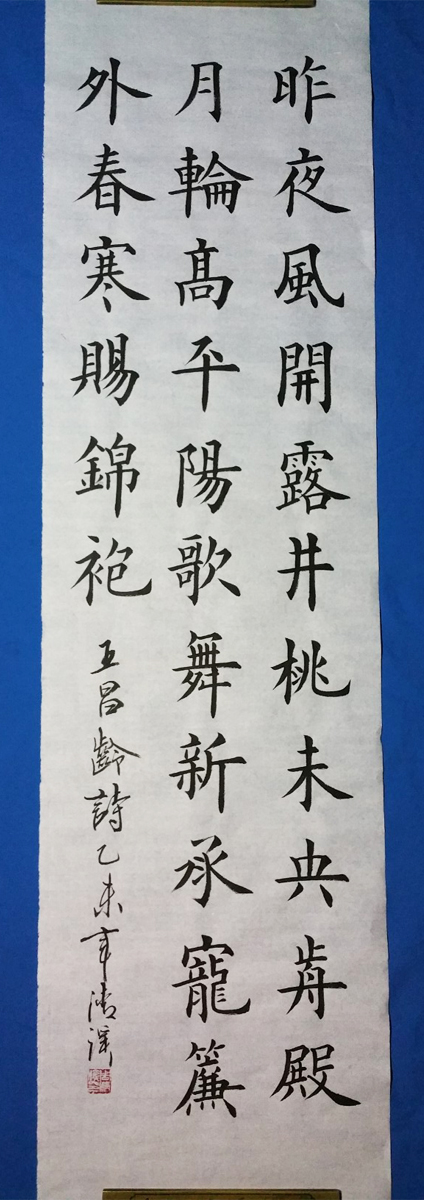 昨夜風開露井桃未央歬殿
月輪髙平陽歌舞新承寵簾
外春寒賜錦袍
王昌齡詩乙未年清